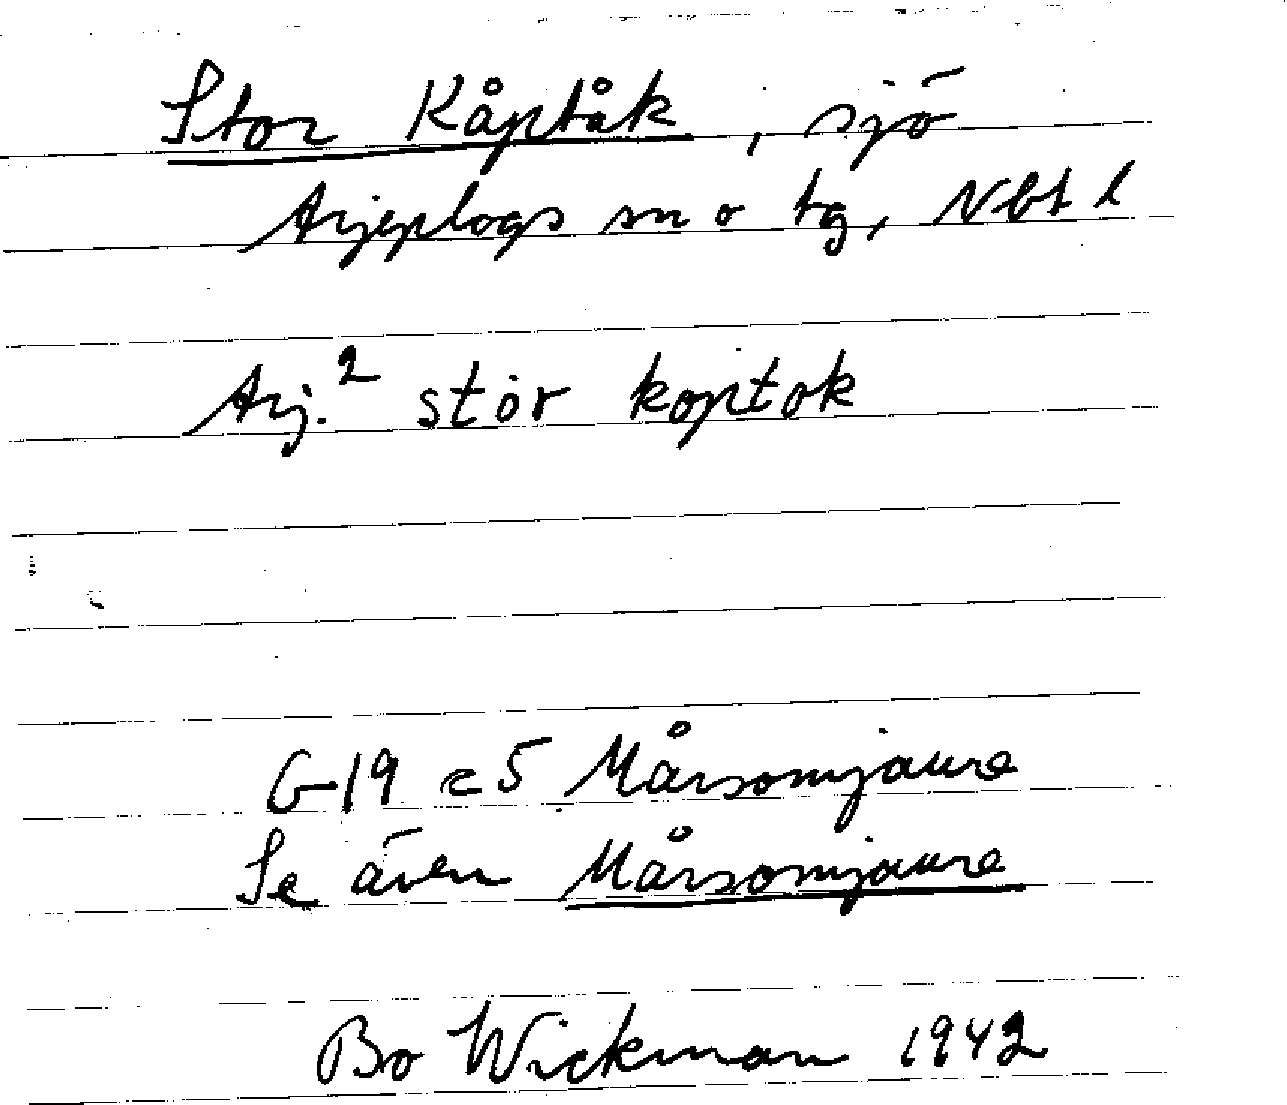 Stor Kåptåk, sjö
Arjeplogs sn o tg, Nbt l
Arj.² stòr koptok
G-19 c 5 Mårsomjaure
Se även Mårsomjaure
Bo Wickman 1942